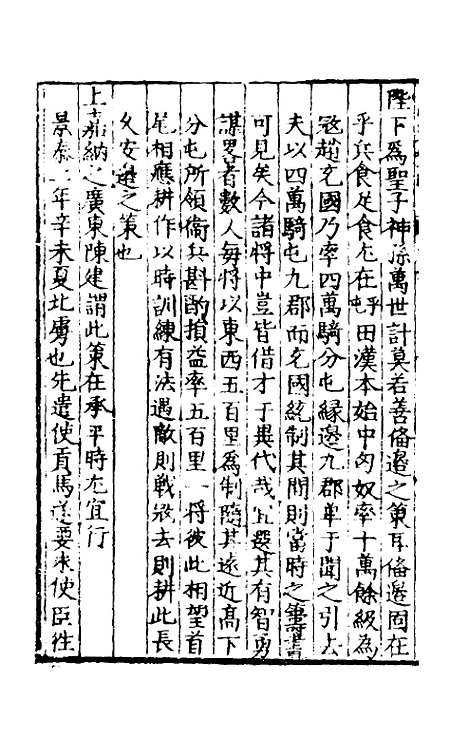 陛下爲聖子神孫萬世計莫若善俻邉之策耳俻邉固在
乎兵食足食尤在乎屯田漢本始中匈奴率十萬餘級為
冦趙充國乃率四萬騎分屯縁邉九郡单于聞之引去
夫以四萬騎屯九郡而充國統制其間則當時之籌畫
可見矣今諸將中豈皆借才于異代哉宜選其有智勇
謀畧者數人每將以東西五百里爲制隨其遠近髙下
分屯所領衞兵斟酌損益率五百里一將彼此相望首
尾相應耕作以時訓練有法遇敵則戰冦去則耕此長
久安邉之策也
上嘉納之廣東陳建謂此策在承平時尤宜行
景泰二年辛未夏北虜也先遣使貢馬遂要求使臣徃